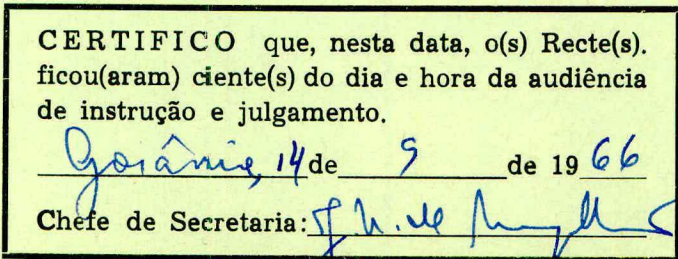 CERTIFICO que, nesta data, o(s) Recte(s).
ficou(aram) ciente(s) do dia e hora da audiência
de instrução e julgamento.
Goiânia, 14 de 9 de 19 66
Chefe de Secretaria: